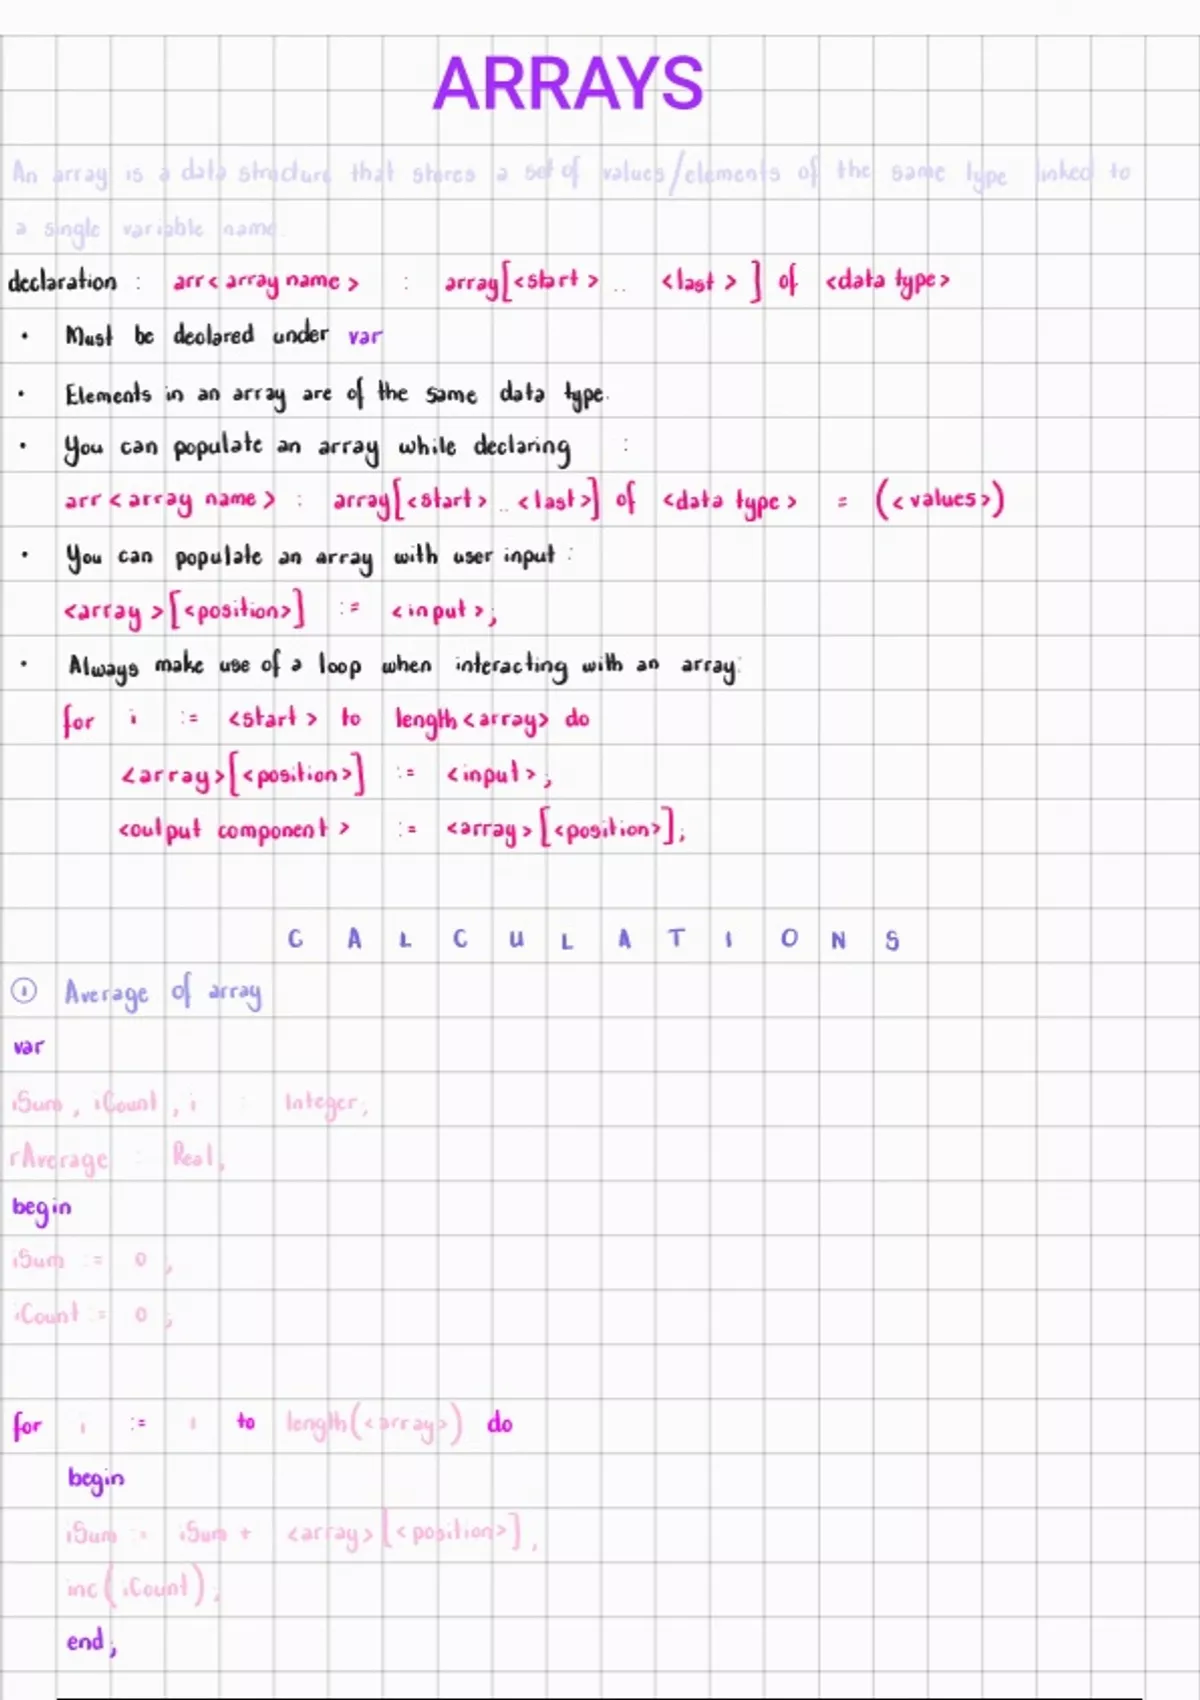 ARRAYS
An array is a data structure that stores a set of values/elements of the same type linked to
a single variable name.
declaration : arr<array name> : array[<start> .. <last>] of <data type>
• Must be declared under var
• Elements in an array are of the same data type.
• You can populate an array while declaring :
arr<array name> : array[<start> .. <last>] of <data type> = (<values>)
• You can populate an array with user input :
<array>[<position>] := <input>;
• Always make use of a loop when interacting with an array:
for i := <start> to length<array> do
<array>[<position>] := <input>;
<output component> := <array>[<position>];
CALCULATIONS
① Average of array
var
iSum, iCount, i : Integer;
rAverage : Real;
begin
iSum := 0;
iCount := 0;
for i := 1 to length(<array>) do
begin
iSum := iSum + <array>[<position>];
inc(iCount);
end;